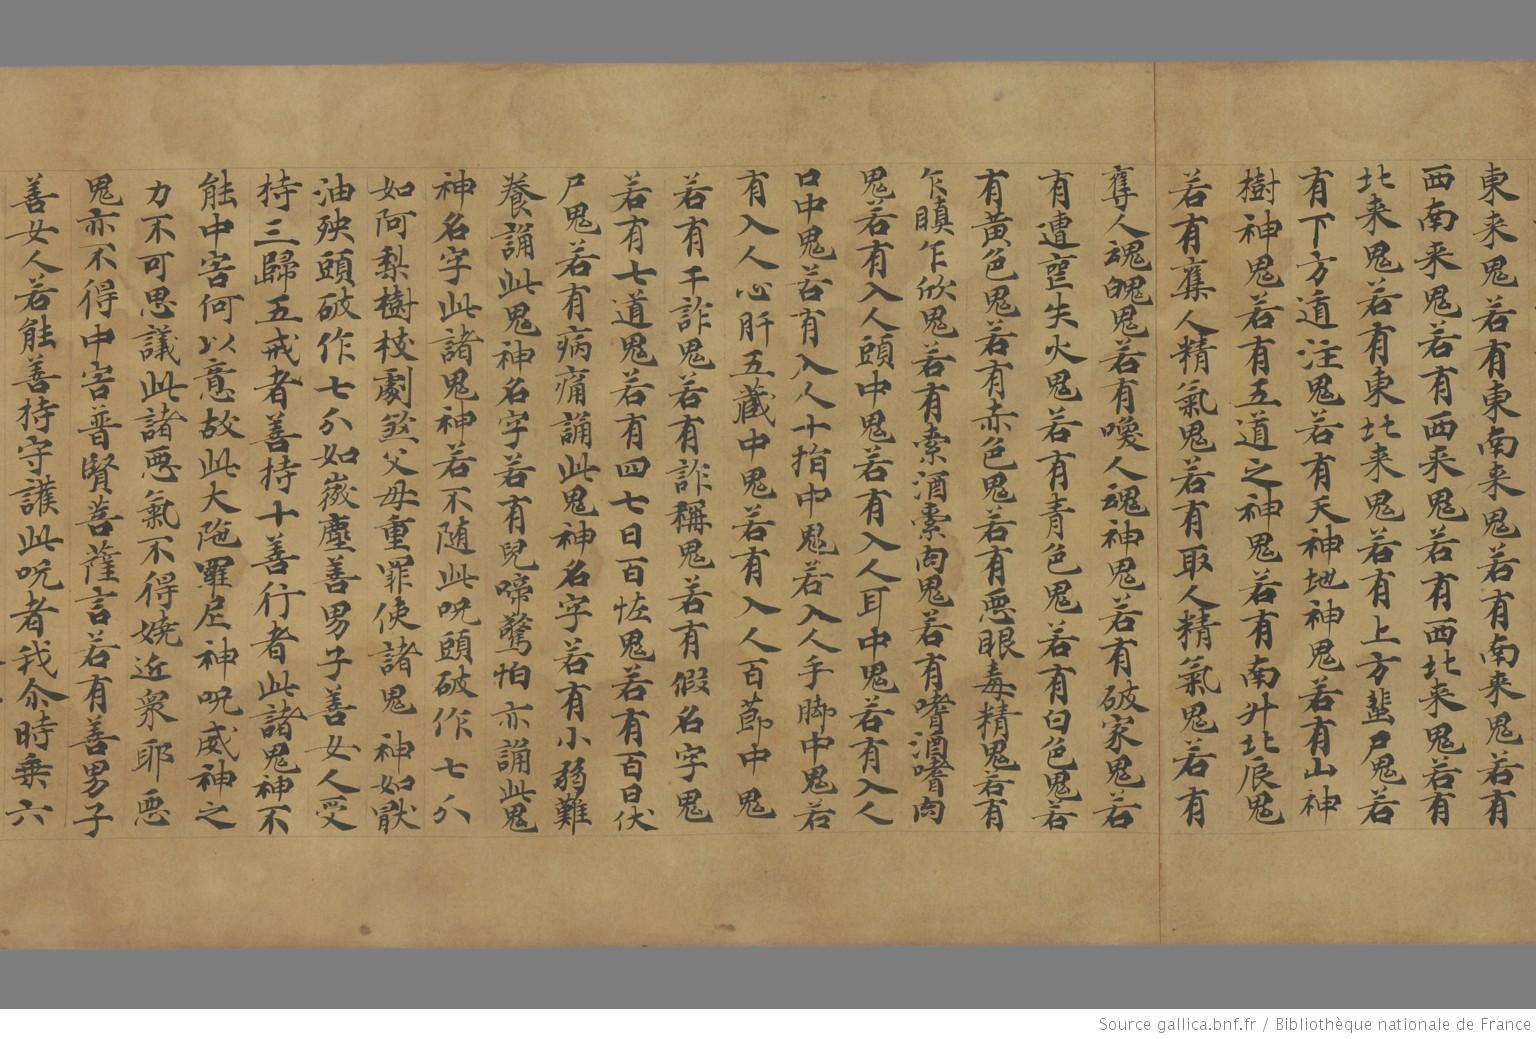 東来鬼若有東南来鬼若有南来鬼若有
西南来鬼若有西来鬼若有西北来鬼若有
北来鬼若有東北来鬼若有上方蜚尸鬼若
有下方道注鬼若有天神地神鬼若有山神
樹神鬼若有五道之神鬼若有南斗北辰鬼
若有奪人精氣鬼若有取人精氣鬼若有
奪人魂魄鬼若有喚人魂神鬼若有破家鬼若
有遭空失火鬼若有青色鬼若有白色鬼若
有黃色鬼若有赤色鬼若有惡眼毒精鬼若有
乍瞋乍欣鬼若有索酒索肉鬼若有嗜酒嗜肉
鬼若有入人頭中鬼若有入人耳中鬼若有入人
口中鬼若有入人十指中鬼若入人手脚中鬼若
有入人心肝五藏中鬼若有入人百節中鬼
若有千詐鬼若有詐稱鬼若有假名字鬼
若有七道鬼若有四七日百恠鬼若有百日伏
尸鬼若有病痛誦此鬼神名字若有小弱難
養誦此鬼神名字若有兒啼驚怕亦誦此鬼
神名字此諸鬼神若不随此呪頭破作七分
如阿梨樹枝劇煞父母重罪使諸鬼神如猒
油殃頭破作七分如微塵善男子善女人受
持三歸五戒者善持十善行者此諸鬼神不
能中害何以意故此大陁羅尼神呪威神之
力不可思議此諸惡氣不得嬈近衆耶惡
鬼亦不得中害普賢菩薩言若有善男子
善女人若能善持守護此呪者我尒時乗六